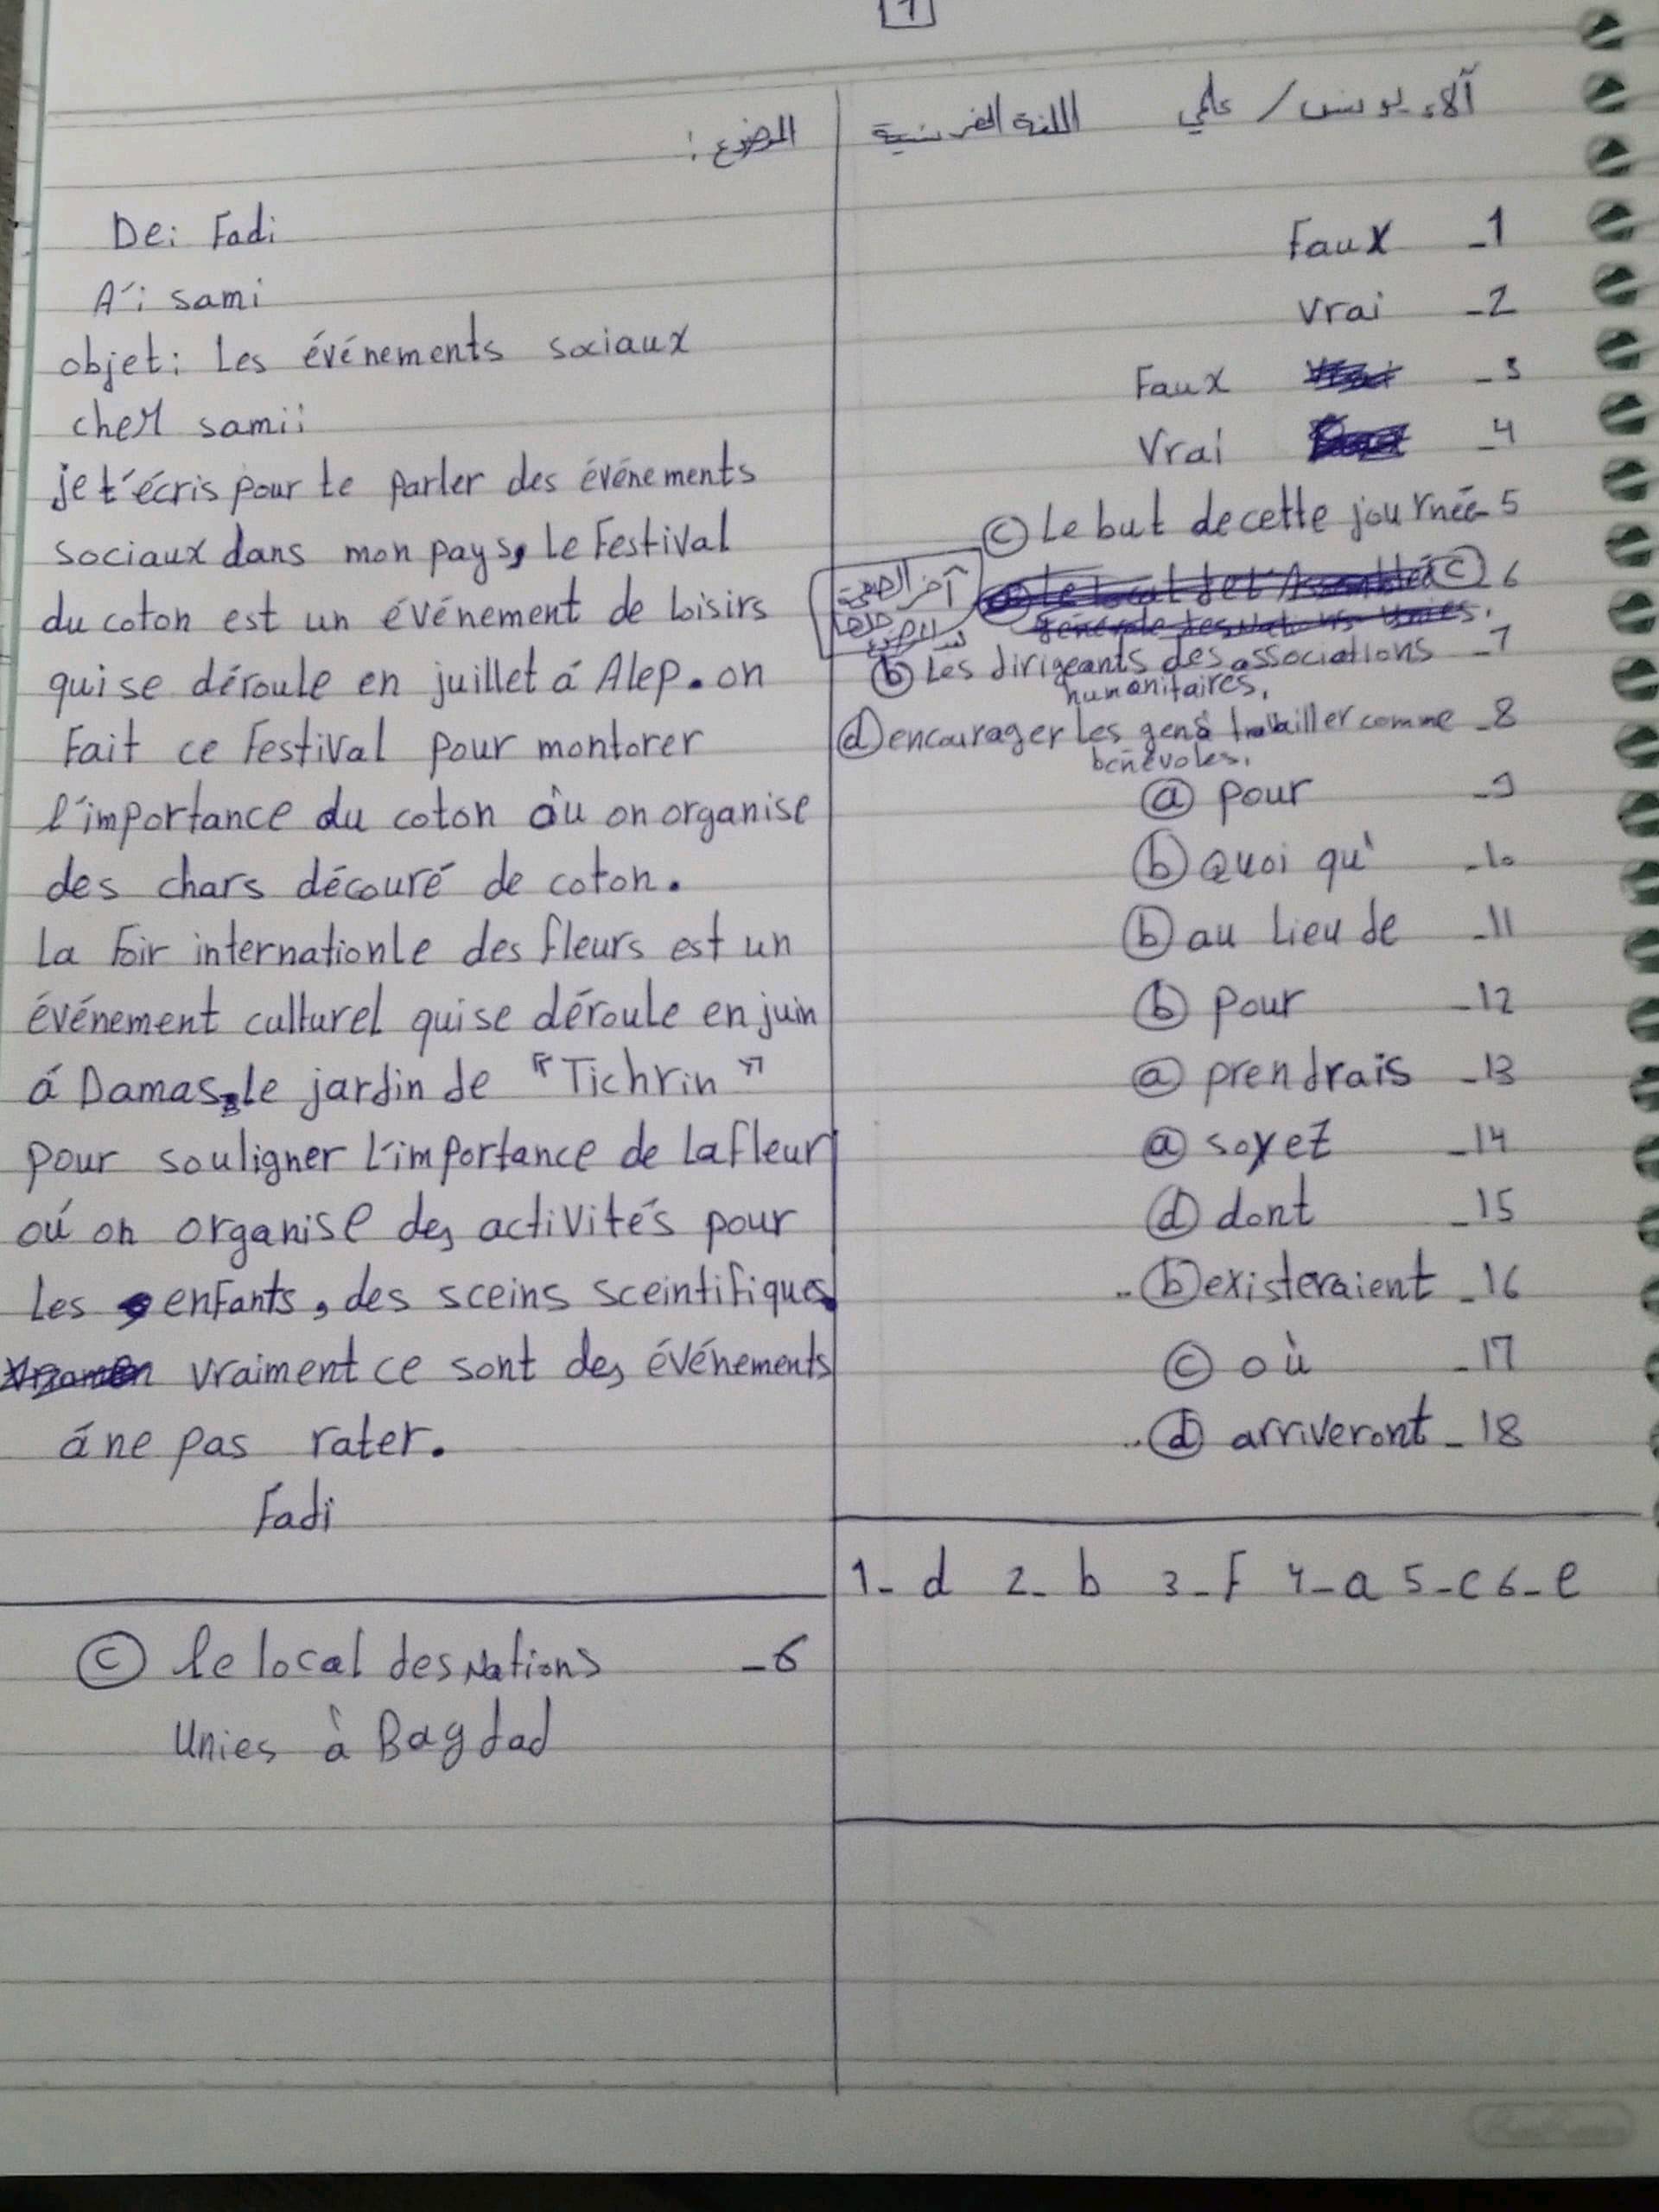 1
آلاء يونس / علمي اللغة الفرنسية
Faux _1
Vrai _2
Faux _3
Vrai _4
ⓒ Le but de cette journée _5
ⓒ _6
آخر الصفحة
حلها
ⓑ Les dirigeants des associations _7
humanitaires.
ⓓ encourager les gens travailler comme _8
bénévoles.
ⓐ pour _9
ⓑ Quoi qu' _10
ⓑ au lieu de _11
ⓑ pour _12
ⓐ prendrais _13
ⓐ soyez _14
ⓓ dont _15
ⓑ existeraient _16
ⓒ où _17
ⓓ arriveront _18
1- d 2- b 3-F 4-a 5-c 6-e
الموضوع :
De: Fadi
A': sami
objet: Les événements sociaux
cher sami:
je t'écris pour te parler des événements
sociaux dans mon pays, Le Festival
du coton est un événement de loisirs
qui se déroule en juillet á Alep. on
Fait ce Festival pour montorer
l'importance du coton où on organise
des chars découré de coton.
La Foir internationle des fleurs est un
événement culturel qui se déroule en juin
á Damas, le jardin de "Tichrin"
pour souligner l'importance de la fleur
oú on organise des activités pour
Les enfants, des sceins sceintifiques.
vraiment ce sont des événements
á ne pas rater.
Fadi
ⓒ le local des Nations _6
Unies à Bagdad